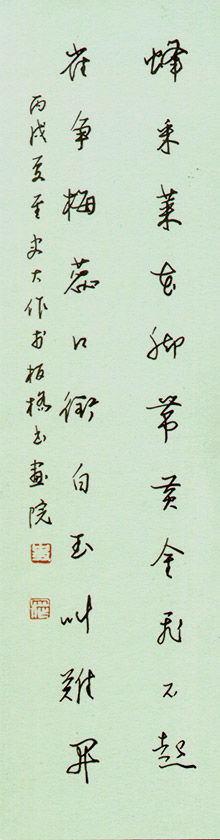 蜂采菜花脚带黄金飞不起
雀争梅蕊口衔白玉叫难开
丙戌夏至史大作于板桥书画院